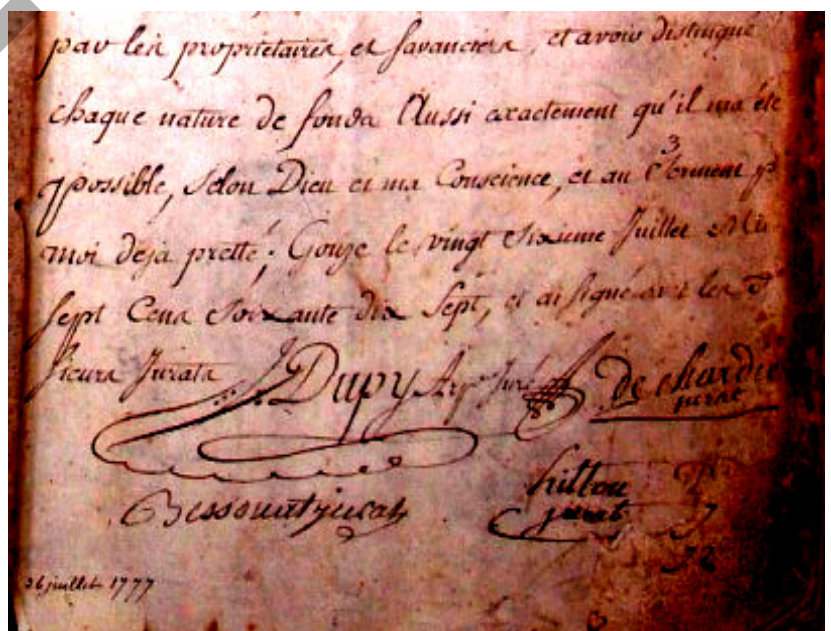 par les propriétaires, et savanciers, et avoir distingué
chaque nature de fonds Aussi exactement qu'il m'a été
possible, selon Dieu et ma Conscience, et au serment p
moi deja pretté; Gouze le vingt sixieme Juillet Mil
sept Cens soixante dix sept, et ai signé avec les d
sieurs Jurats Dupy Arp. Juré de chardie
jurat
Bessouat jurat hillou
jurat
26 juillet 1777